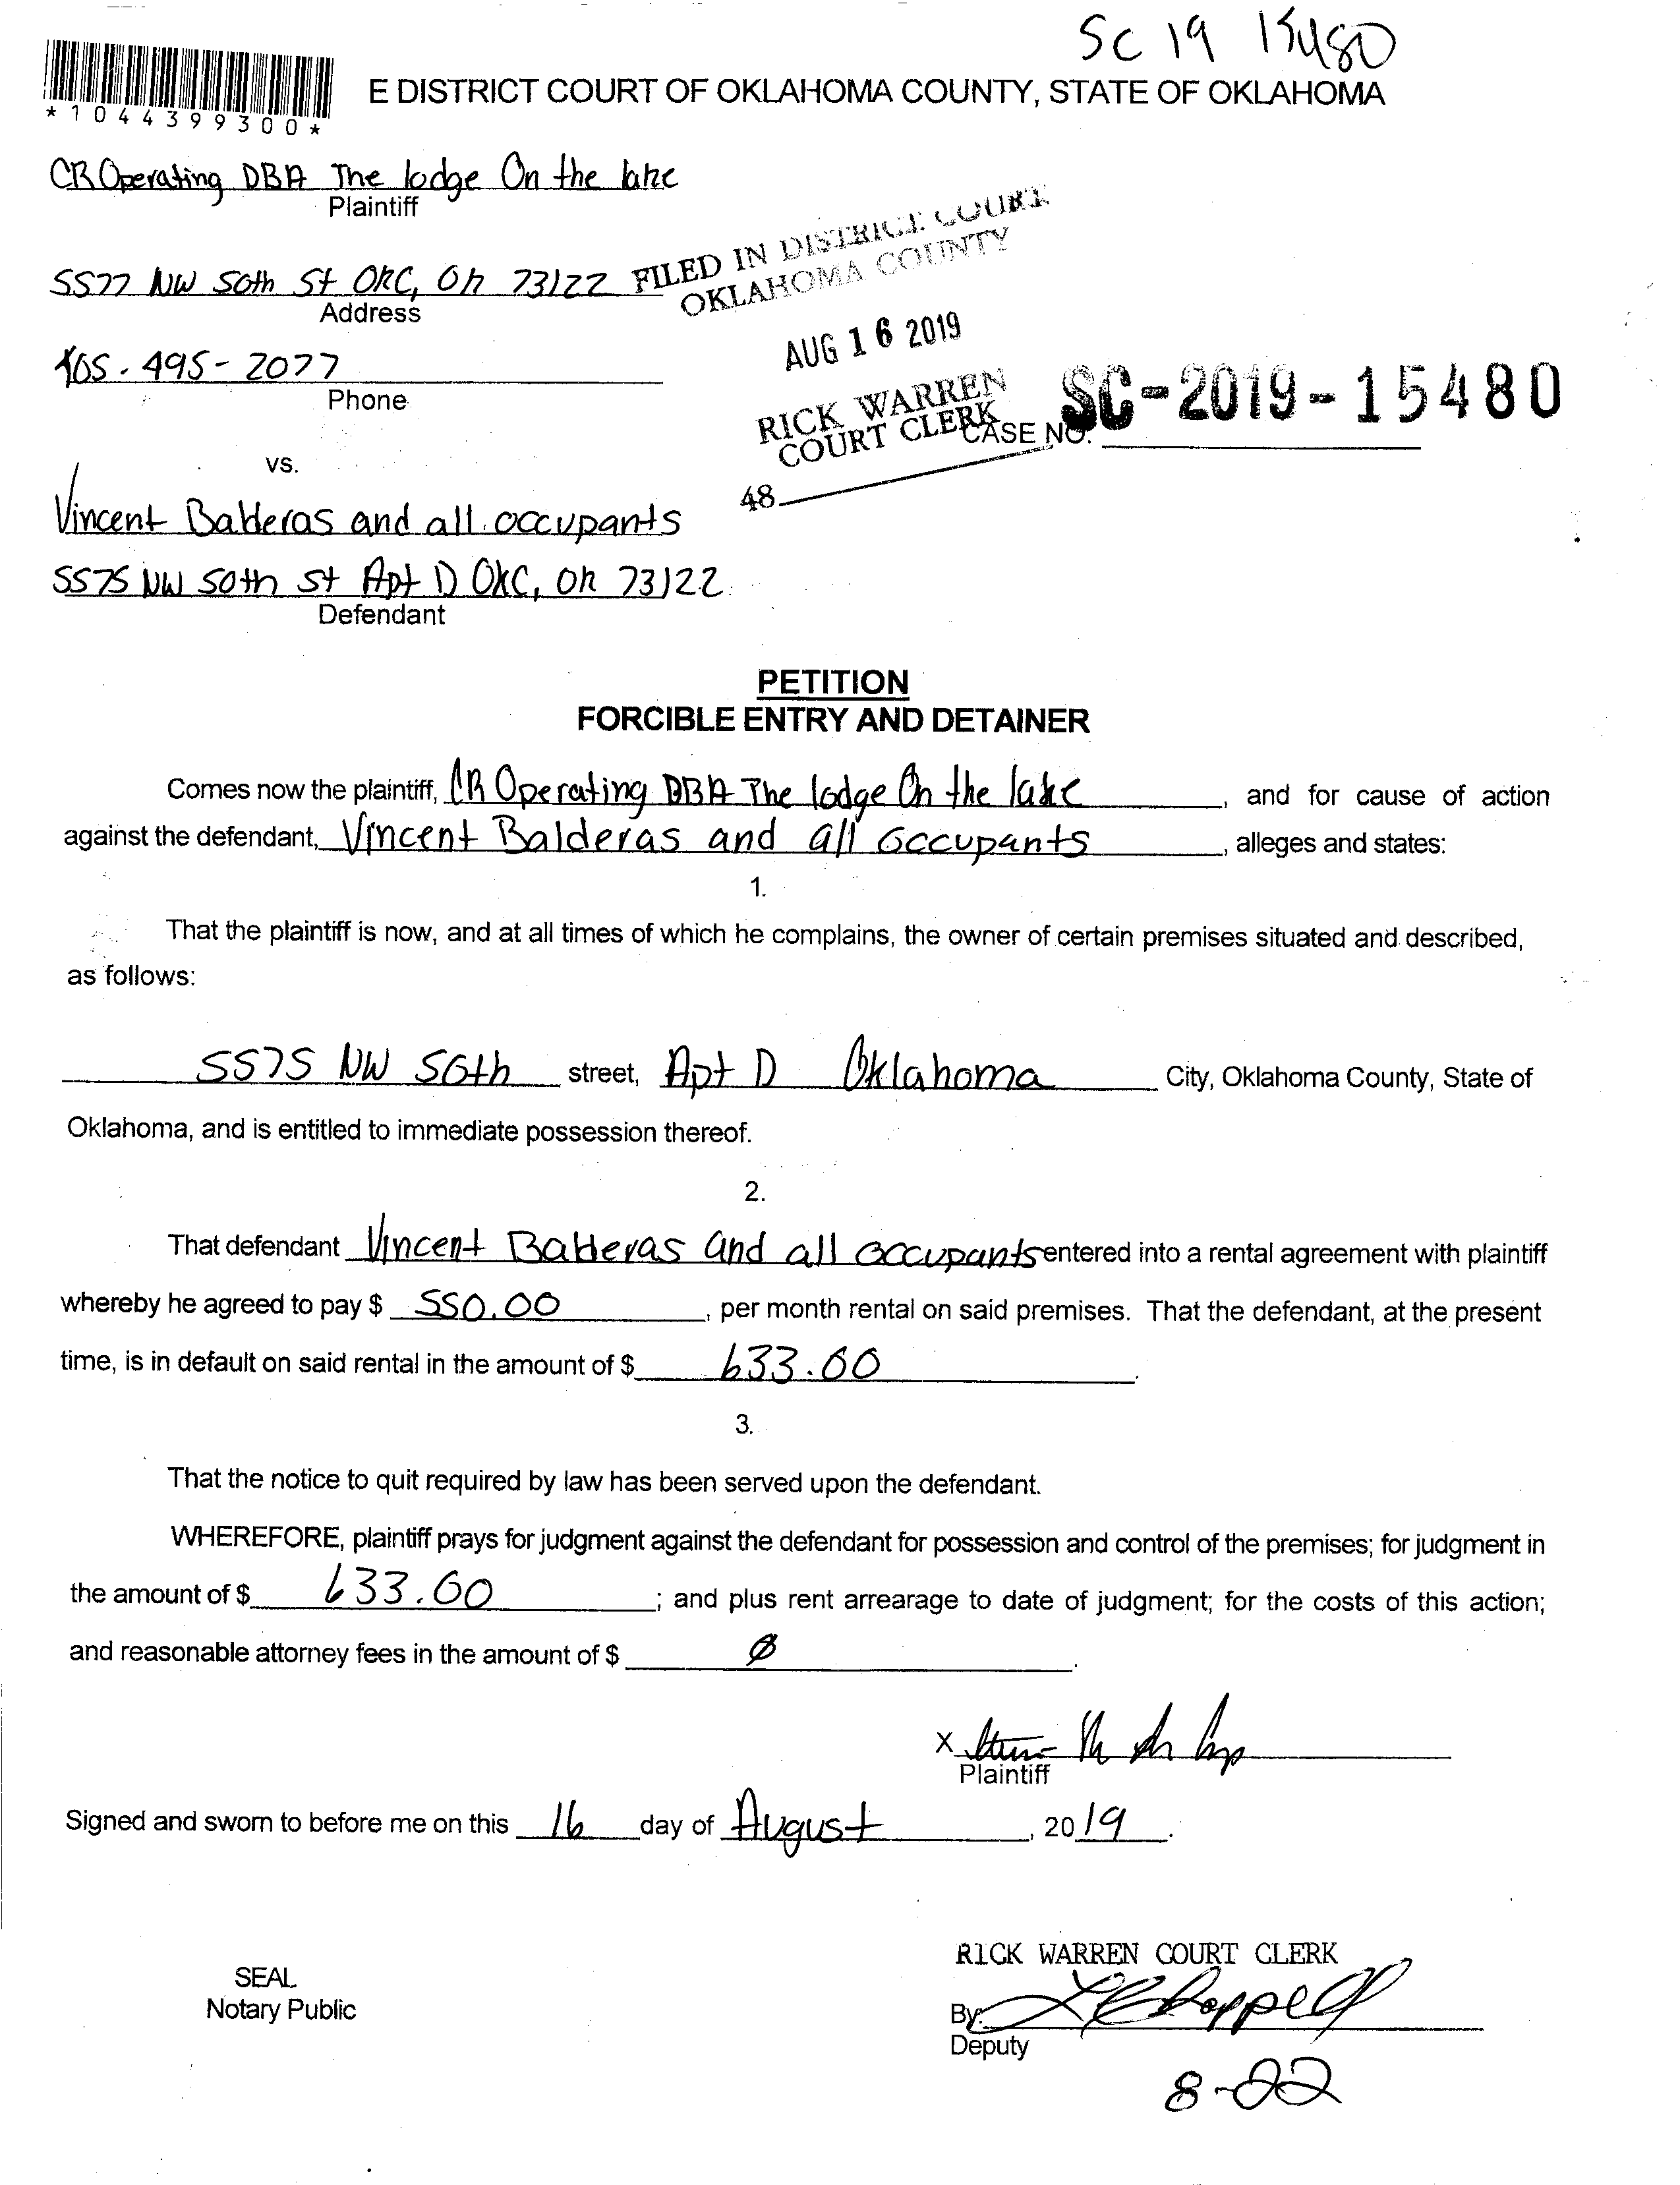 SC 19 15480
E DISTRICT COURT OF OKLAHOMA COUNTY, STATE OF OKLAHOMA
*1044399300*
CR Operating DBA The lodge On the lake
Plaintiff
FILED IN DISTRICT COURT
OKLAHOMA COUNTY
5577 NW 50th St OKC, OK 73122
Address
AUG 16 2019
405-495-2077
Phone
RICK WARREN
COURT CLERK
CASE NO. SC-2019-15480
48
vs.
Vincent Balderas and all occupants
5575 NW 50th St Apt D OKC, OK 73122
Defendant
PETITION
FORCIBLE ENTRY AND DETAINER
Comes now the plaintiff, CR Operating DBA The lodge On the lake, and for cause of action
against the defendant, Vincent Balderas and all occupants, alleges and states:
1.
That the plaintiff is now, and at all times of which he complains, the owner of certain premises situated and described,
as follows:
5575 NW 50th street, Apt D Oklahoma City, Oklahoma County, State of
Oklahoma, and is entitled to immediate possession thereof.
2.
That defendant Vincent Balderas and all occupants entered into a rental agreement with plaintiff
whereby he agreed to pay $ 550.00, per month rental on said premises. That the defendant, at the present
time, is in default on said rental in the amount of $ 633.00.
3.
That the notice to quit required by law has been served upon the defendant.
WHEREFORE, plaintiff prays for judgment against the defendant for possession and control of the premises; for judgment in
the amount of $ 633.00; and plus rent arrearage to date of judgment; for the costs of this action;
and reasonable attorney fees in the amount of $ Ø.
X
Plaintiff
Signed and sworn to before me on this 16 day of August, 2019.
RICK WARREN COURT CLERK
SEAL
Notary Public
By:
Deputy
8-22